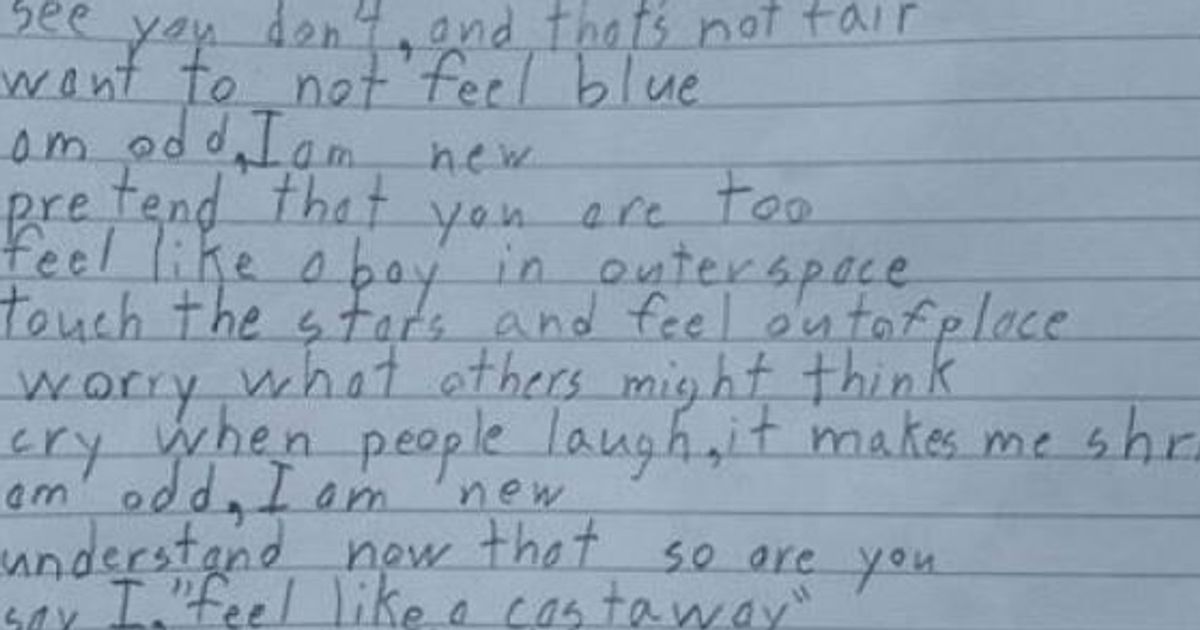 see you don't, and that's not fair
want to not feel blue
am odd, I am new
pretend that you are too
feel like a boy in outerspace
touch the stars and feel outofplace
worry what others might think
cry when people laugh, it makes me shr
am odd, I am new
understand now that so are you
say I, "feel like a castaway"